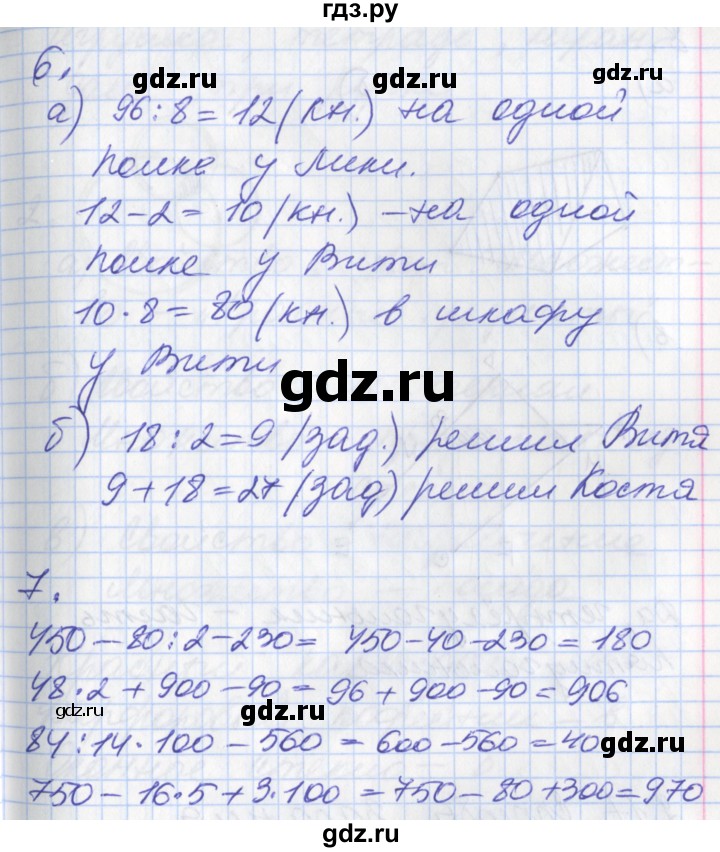 гдз.ру
6.
gdz.ru gdz.ru
а) 96:8=12(кн.) на одной
полке у Лики.
12-2=10(кн.) – на одной
gdz.ru gdz.ru
полке у Вити
10·8=80(кн.) в шкафу
у Вити
gdz.ru
б) 18:2=9 (зад.) решил Витя
9+18=27 (зад) решил Костя
gdz.ru gdz.ru
7.
450-80:2-230= 450-40-230=180
48·2+900-90= 96+900-90=906
gdz.ru gdz.ru
84:14·100-560=600-560=40
750-16·5+3·100=750-80+300=970
gdz.ru